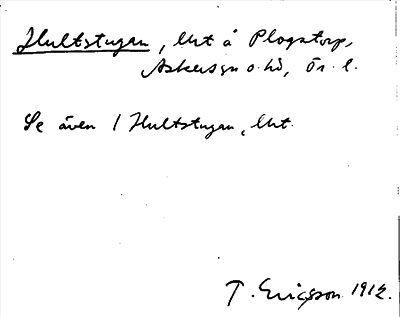 Hultstugan, lht å Plogstorp,
Askers sn o. hd, Ör. l.
Se även 1 Hultstugan, lht.
T. Ericsson 1912.